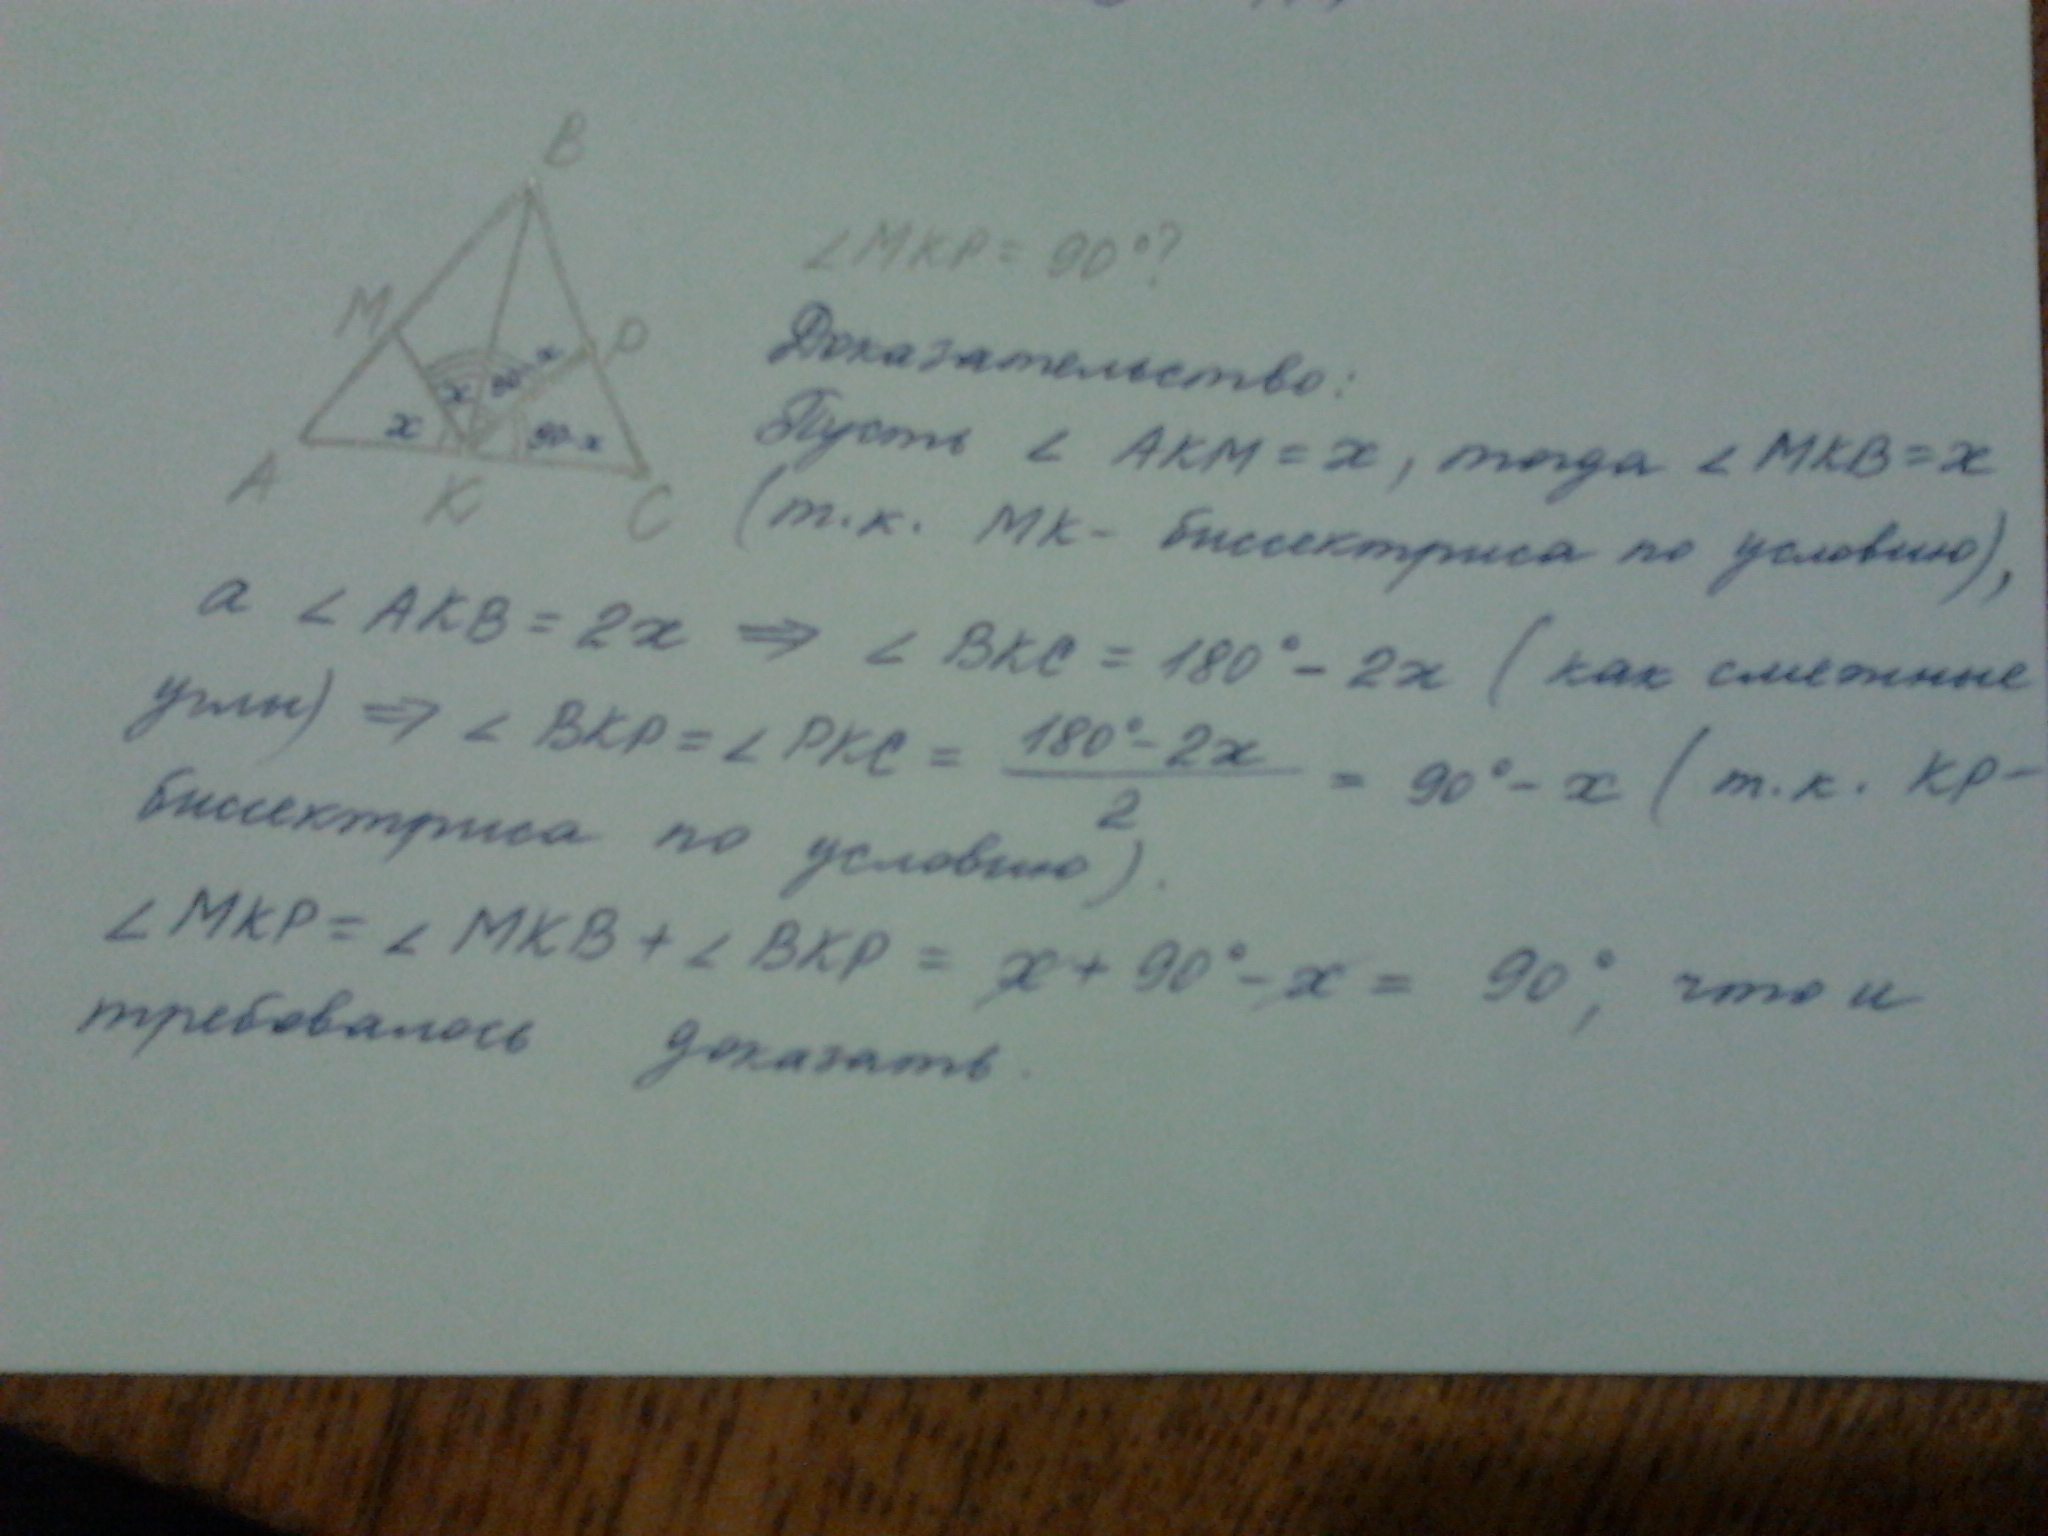 B
∠MKP = 90°?
M
P
x
x
90-x
90-x
A
K
C
Доказательство:
Пусть ∠ AKM = x, тогда ∠ MKB = x
(т.к. MK - биссектриса по условию),
а ∠ AKB = 2x ⇒ ∠ BKC = 180° - 2x (как смежные
углы) ⇒ ∠ BKP = ∠ PKC = (180° - 2x)/2 = 90° - x (т.к. KP -
биссектриса по условию).
∠ MKP = ∠ MKB + ∠ BKP = x + 90° - x = 90°, что и
требовалось доказать.